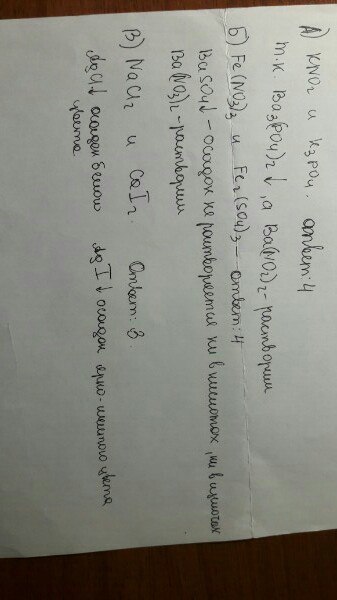 А) KNO2 и K3PO4. ответ:4
т.к. Ba3(PO4)2↓, а Ba(NO2)2-растворим
Б) Fe(NO3)3 и Fe2(SO4)3 — ответ:4
BaSO4↓ – осадок не растворяется ни в кислотах, ни в щелочах
Ba(NO3)2-растворим
В) NaCl2 и CaI2. Ответ: 3.
AgCl↓ осадок белого AgI↓ осадок ярко-желтого цвета
цвета